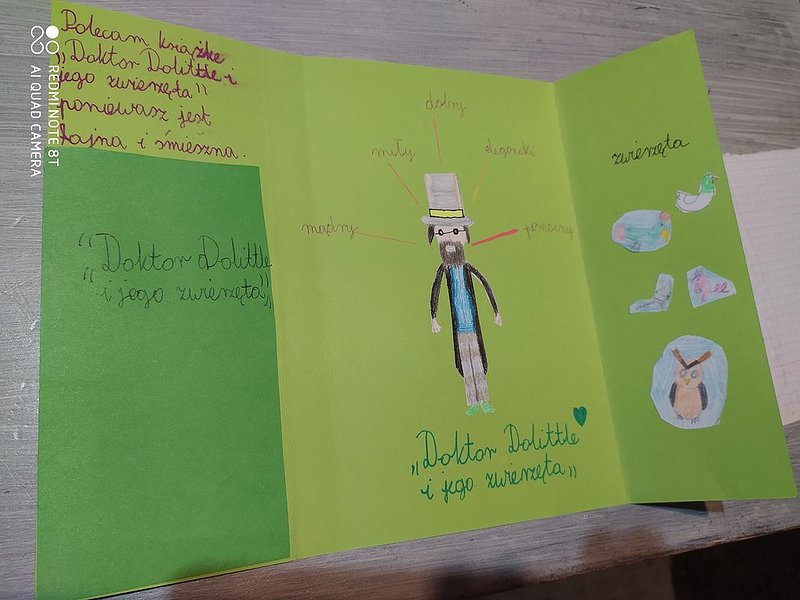 Polecam książkę
„Doktor Dolittle i
jego zwierzęta”
ponieważ jest
fajna i śmieszna.
“Doktor Dolittle
i jego zwierzęta”
dobry
miły
elegancki
mądry
pomocny
„Doktor Dolittle
i jego zwierzęta”
zwierzęta
REDMI NOTE 8T
AI QUAD CAMERA